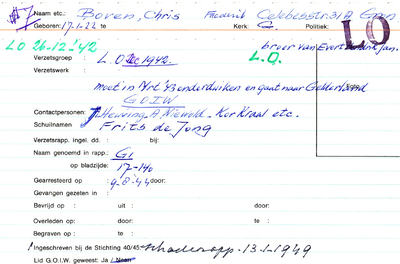 Naam etc.: Boven, Chris Frederik Celebesstr. 31A Gron
Geboren: 17-1-22 te Kerk: G. Politiek:
LO
LO 26-12-'42 broer van Evert en Jan.
Verzetsgroep : L.O. Dec 1942. L.O.
Verzetswerk
moest in Mrt '43 onderduiken en gaat naar Gelderland
G.O.I.W
Contactpersonen: Hewing, A. Nieuwold, Kor Kraal etc.
Schuilnamen : Frits de Jong
Verzetsrapp. ingel. dd. : bij:
Naam genoemd in rapp.: G1
op bladzijde: 17-140
Gearresteerd op : 9-8-44 door:
Gevangen gezeten in :
Bevrijd op : uit : door:
Overleden op: door: te :
Begraven op : te :
Ingeschreven bij de Stichting 40/45: 13-1-1949
Lid G.O.I.W. geweest: Ja / Neen